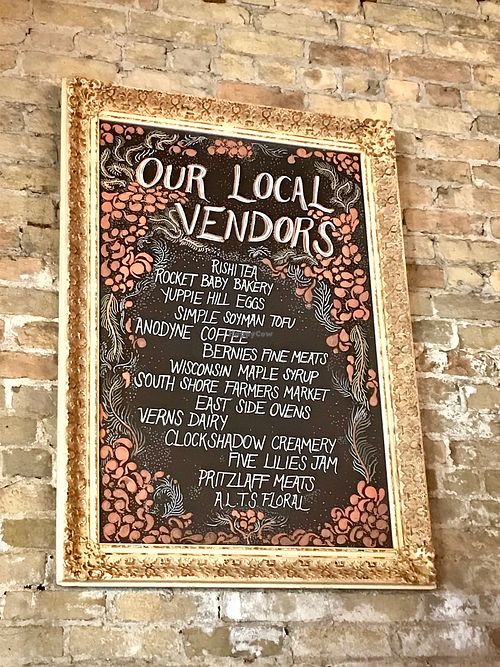 OUR LOCAL
VENDORS
RISHI TEA
ROCKET BABY BAKERY
YUPPIE HILL EGGS
SIMPLE SOYMAN TOFU
ANODYNE COFFEE
BERNIES FINE MEATS
WISCONSIN MAPLE SYRUP
SOUTH SHORE FARMERS MARKET
EAST SIDE OVENS
VERNS DAIRY
CLOCKSHADOW CREAMERY
FIVE LILIES JAM
PRITZLAFF MEATS
A.L.T.S. FLORAL